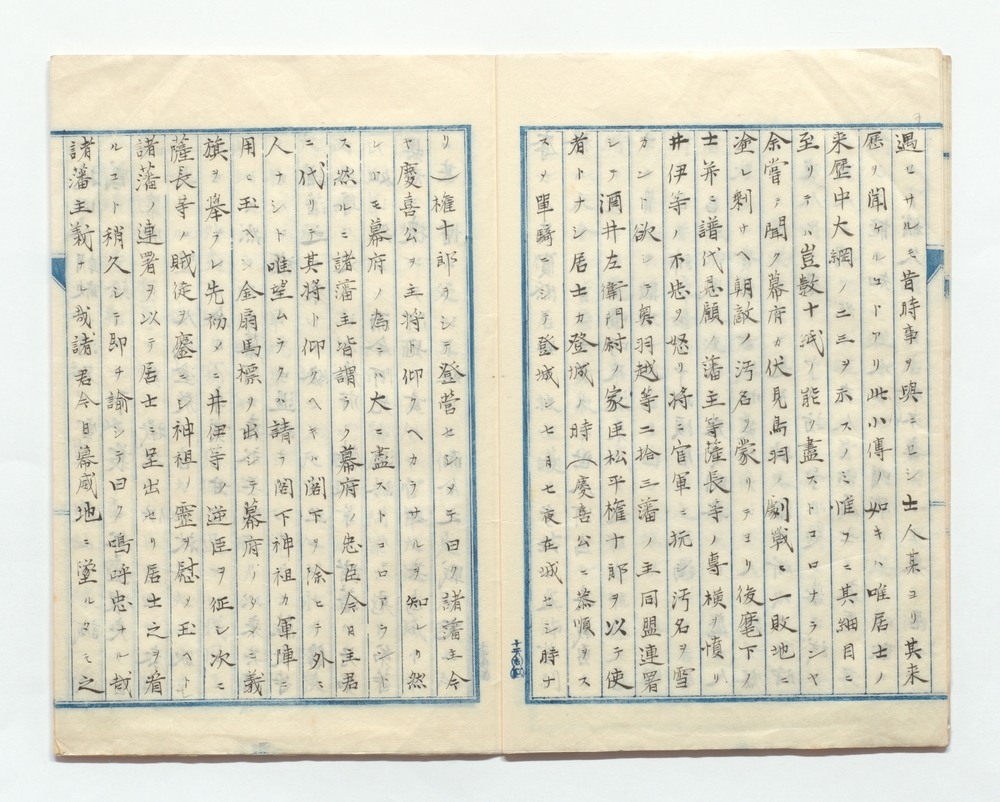 過セサルモ昔時事ヲ與ニセシ士人某ヨリ其来
歴ヲ聞ケルコトアリ此小傳ノ如キハ唯居士ノ
来歴中大綱ノ二三ヲ示スノミ惟ヲニ其細目ニ
至リテハ豈數十帋ノ能ク盡ストコロナランヤ
余嘗テ聞ク幕府カ伏見鳥羽ノ劇戰ニ一敗地ニ
塗レ剰サヘ朝敵ノ汚名ヲ蒙リテヨリ後麾下ノ
士并ニ譜代恩顧ノ藩主等薩長等ノ專横ヲ憤リ
井伊等ノ不忠ヲ怒リ將ニ官軍ニ抗シ汚名ヲ雪
カント欲シテ奥羽越等二拾三藩ノ主同盟連署
シテ酒井左衛門尉ノ家臣松平権十郎ヲ以テ使
者トナシ居士カ登城ノ時（慶喜公ニ恭順ヲス
スメ單騎ニシテ登城シ七日七夜在城セシ時ナ
リ）権十郎ヲシテ登営セシメテ曰ク諸藩主今
ヤ慶喜公ヲ主将ト仰クヘカラサルヲ知レリ然
レトモ幕府ノ為ニハ大ニ盡ストコロアラント
ス然ルニ諸藩主皆謂ラク幕府ノ忠臣今日主君
ニ代リテ其将ト仰クヘキハ閣下ヲ除ヒテ外ニ
人ナシト唯望ムラクハ請ラ閣下神祖カ軍陣ニ
用ヒ玉ヘシ金扇馬標ヲ出シテ幕府ノタメニ義
旗ヲ挙ラレ先初メニ井伊等ノ逆臣ヲ征シ次ニ
薩長等ノ賊徒ヲ鏖ニシ神祖ノ靈ヲ慰メ玉ヘト
諸藩ノ連署ヲ以テ居士ニ呈出セリ居士之ヲ看
ルコト稍久シテ即チ諭シテ曰ク嗚呼忠ナル哉
諸藩主義ナル哉諸君今日幕威地ニ墜ルタモ之